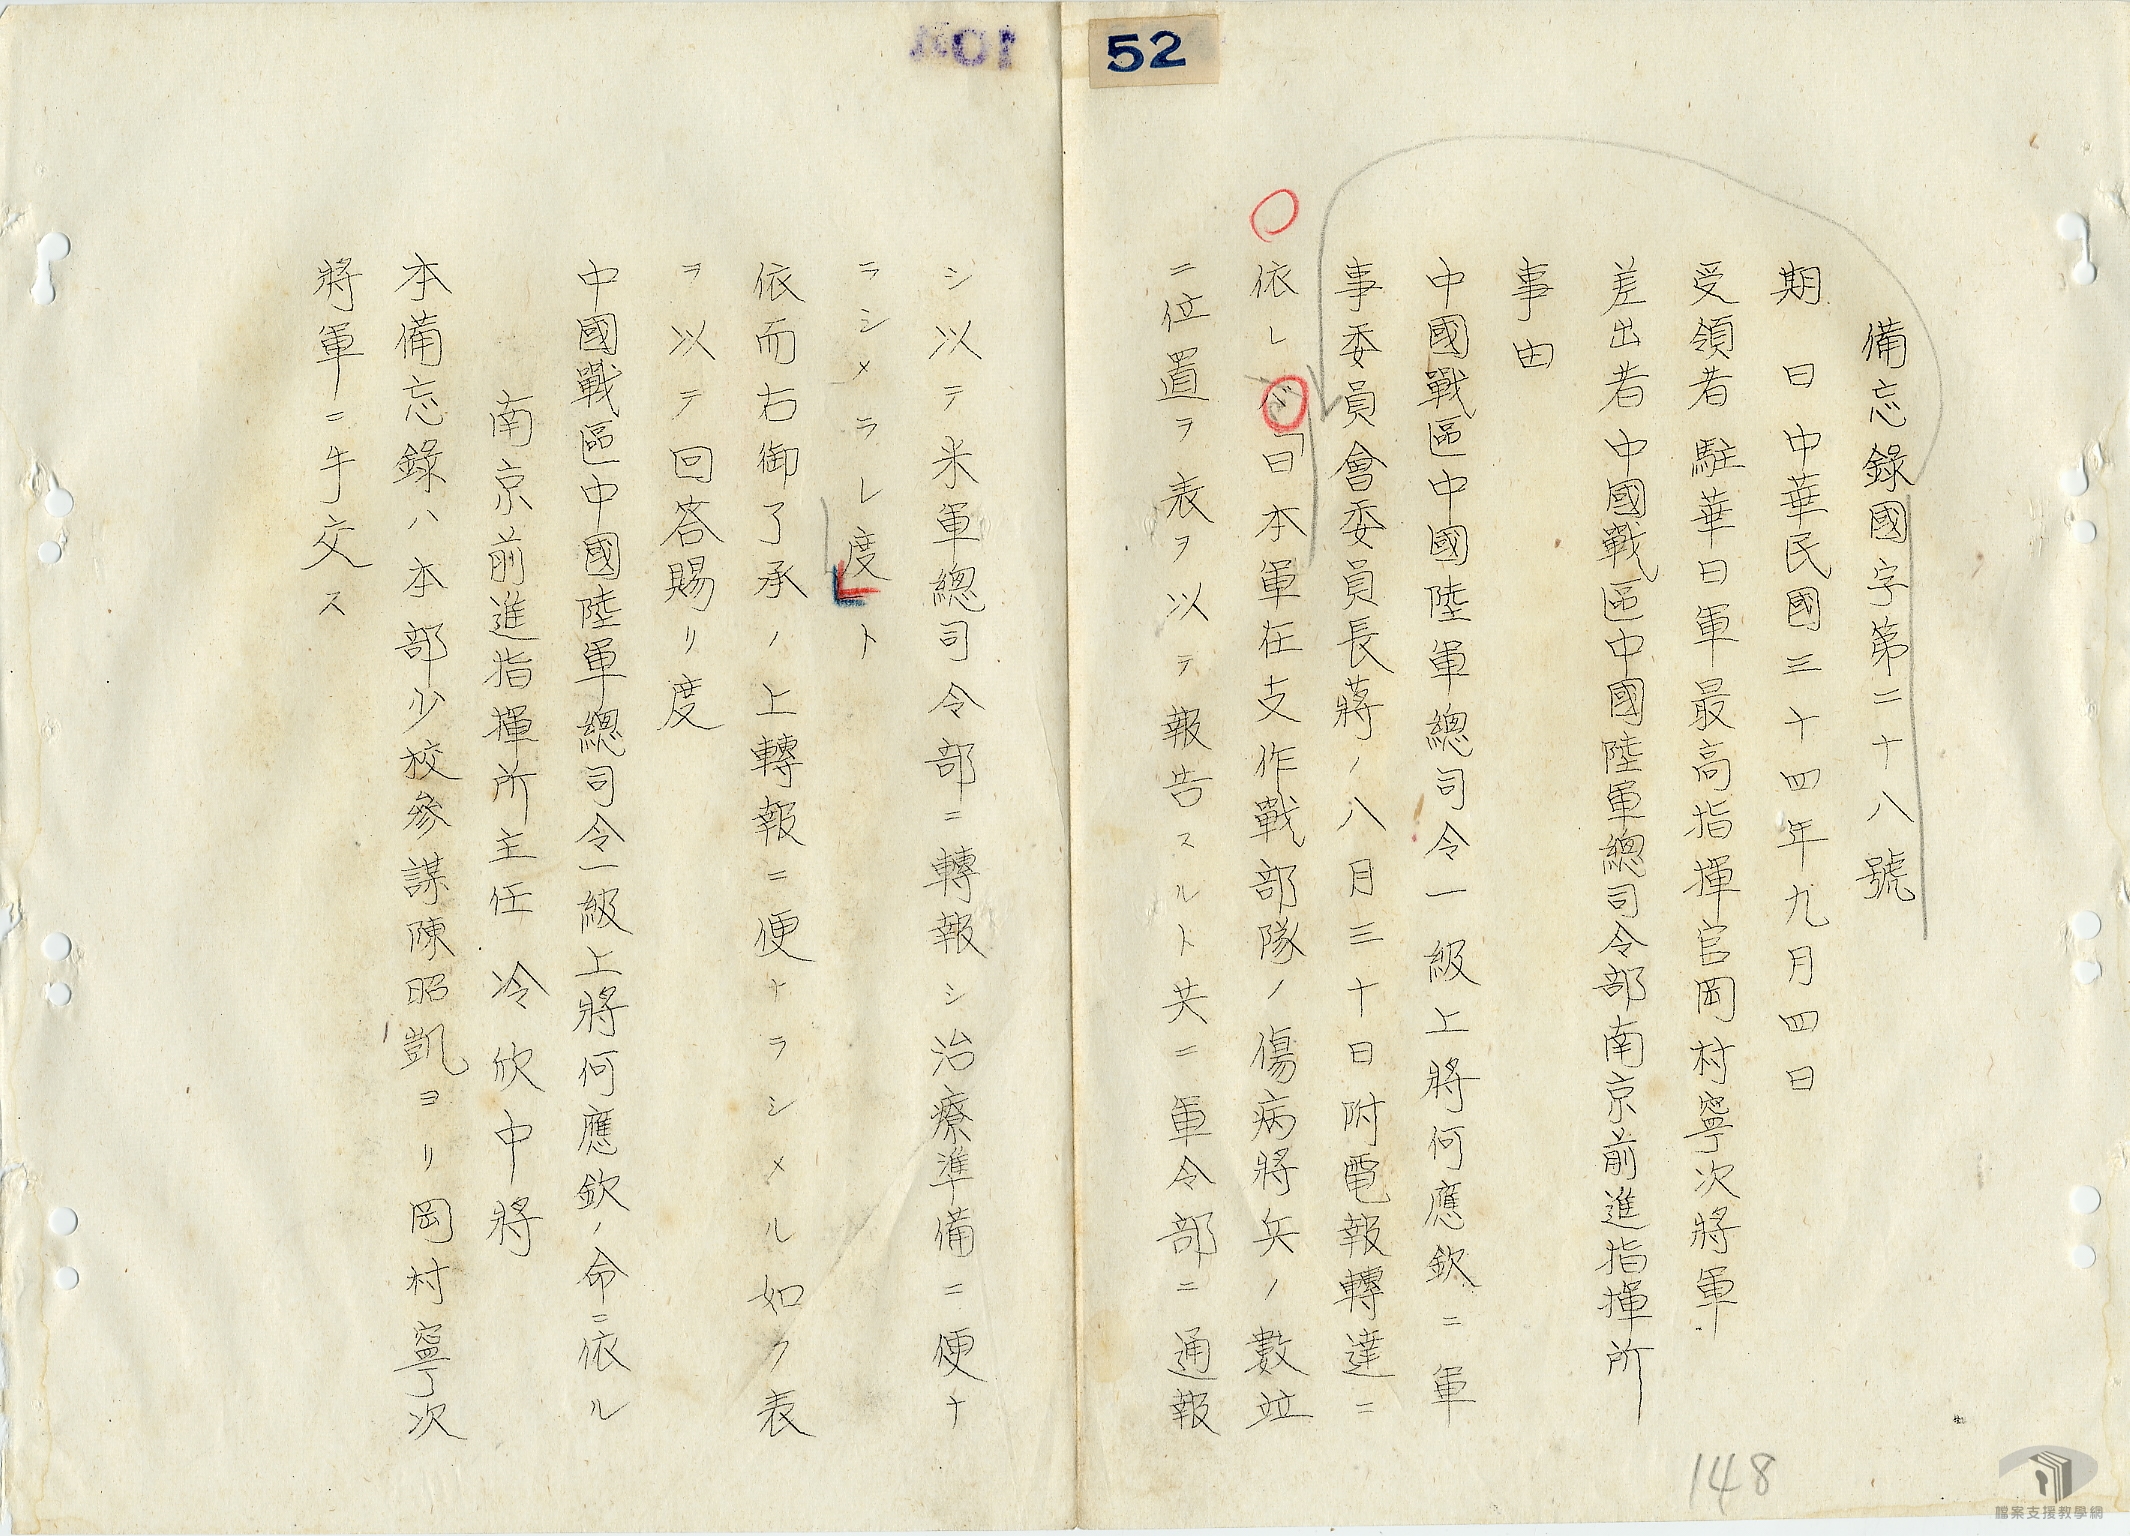 52
備忘錄國字第二十八號
期 日 中華民國三十四年九月四日
受領者 駐華日軍最高指揮官岡村寧次將軍
差出者 中國戰區中國陸軍總司令部南京前進指揮所
事由
中國戰區中國陸軍總司令一級上將何應欽ニ軍
事委員會委員長蔣ノ八月三十日附電報轉達ニ
依レバ「日本軍在支作戰部隊ノ傷病將兵ノ數竝
ニ位置ヲ表ヲ以テ報告スルト共ニ軍令部ニ通報
シ以テ米軍總司令部ニ轉報シ治療準備ニ便ナ
ラシメラレ度」ト
依而右御了承ノ上轉報ニ便ナラシメル如ク表
ヲ以テ回答賜リ度
中國戰區中國陸軍總司令一級上將何應欽ノ命ニ依ル
南京前進指揮所主任 冷欣中將
本備忘錄ハ本部少校參謀陳昭凱ヨリ岡村寧次
將軍ニ手交ス
148
檔案支援教學網